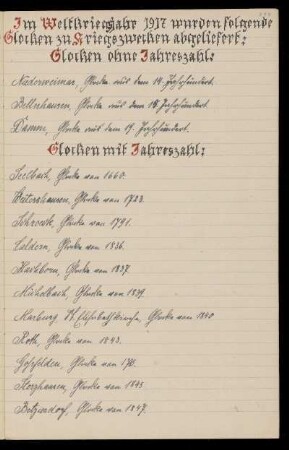 Im Weltkriegsjahr 1917 wurden folgende
Glocken zu Kriegszwecken abgeliefert:
Glocken ohne Jahreszahl:
Niederweimar, Glocke aus dem 14. Jahrhundert.
Bellnhausen, Glocke aus dem 18. Jahrhundert.
Damm, Glocke aus dem 19. Jahrhundert.
Glocken mit Jahreszahl:
Seelbach, Glocke von 1660.
Wittershausen, Glocke von 1723.
Schroeck, Glocke von 1791.
Caldern, Glocke von 1836.
Haddorn, Glocke von 1837.
Michelbach, Glocke von 1839.
Marburg, St. Elisabethkirche, Glocke von 1840
Roth, Glocke von 1843.
Goßfelden, Glocke von
Sterzhausen, Glocke von 1845
Betziesdorf, Glocke von 1847.